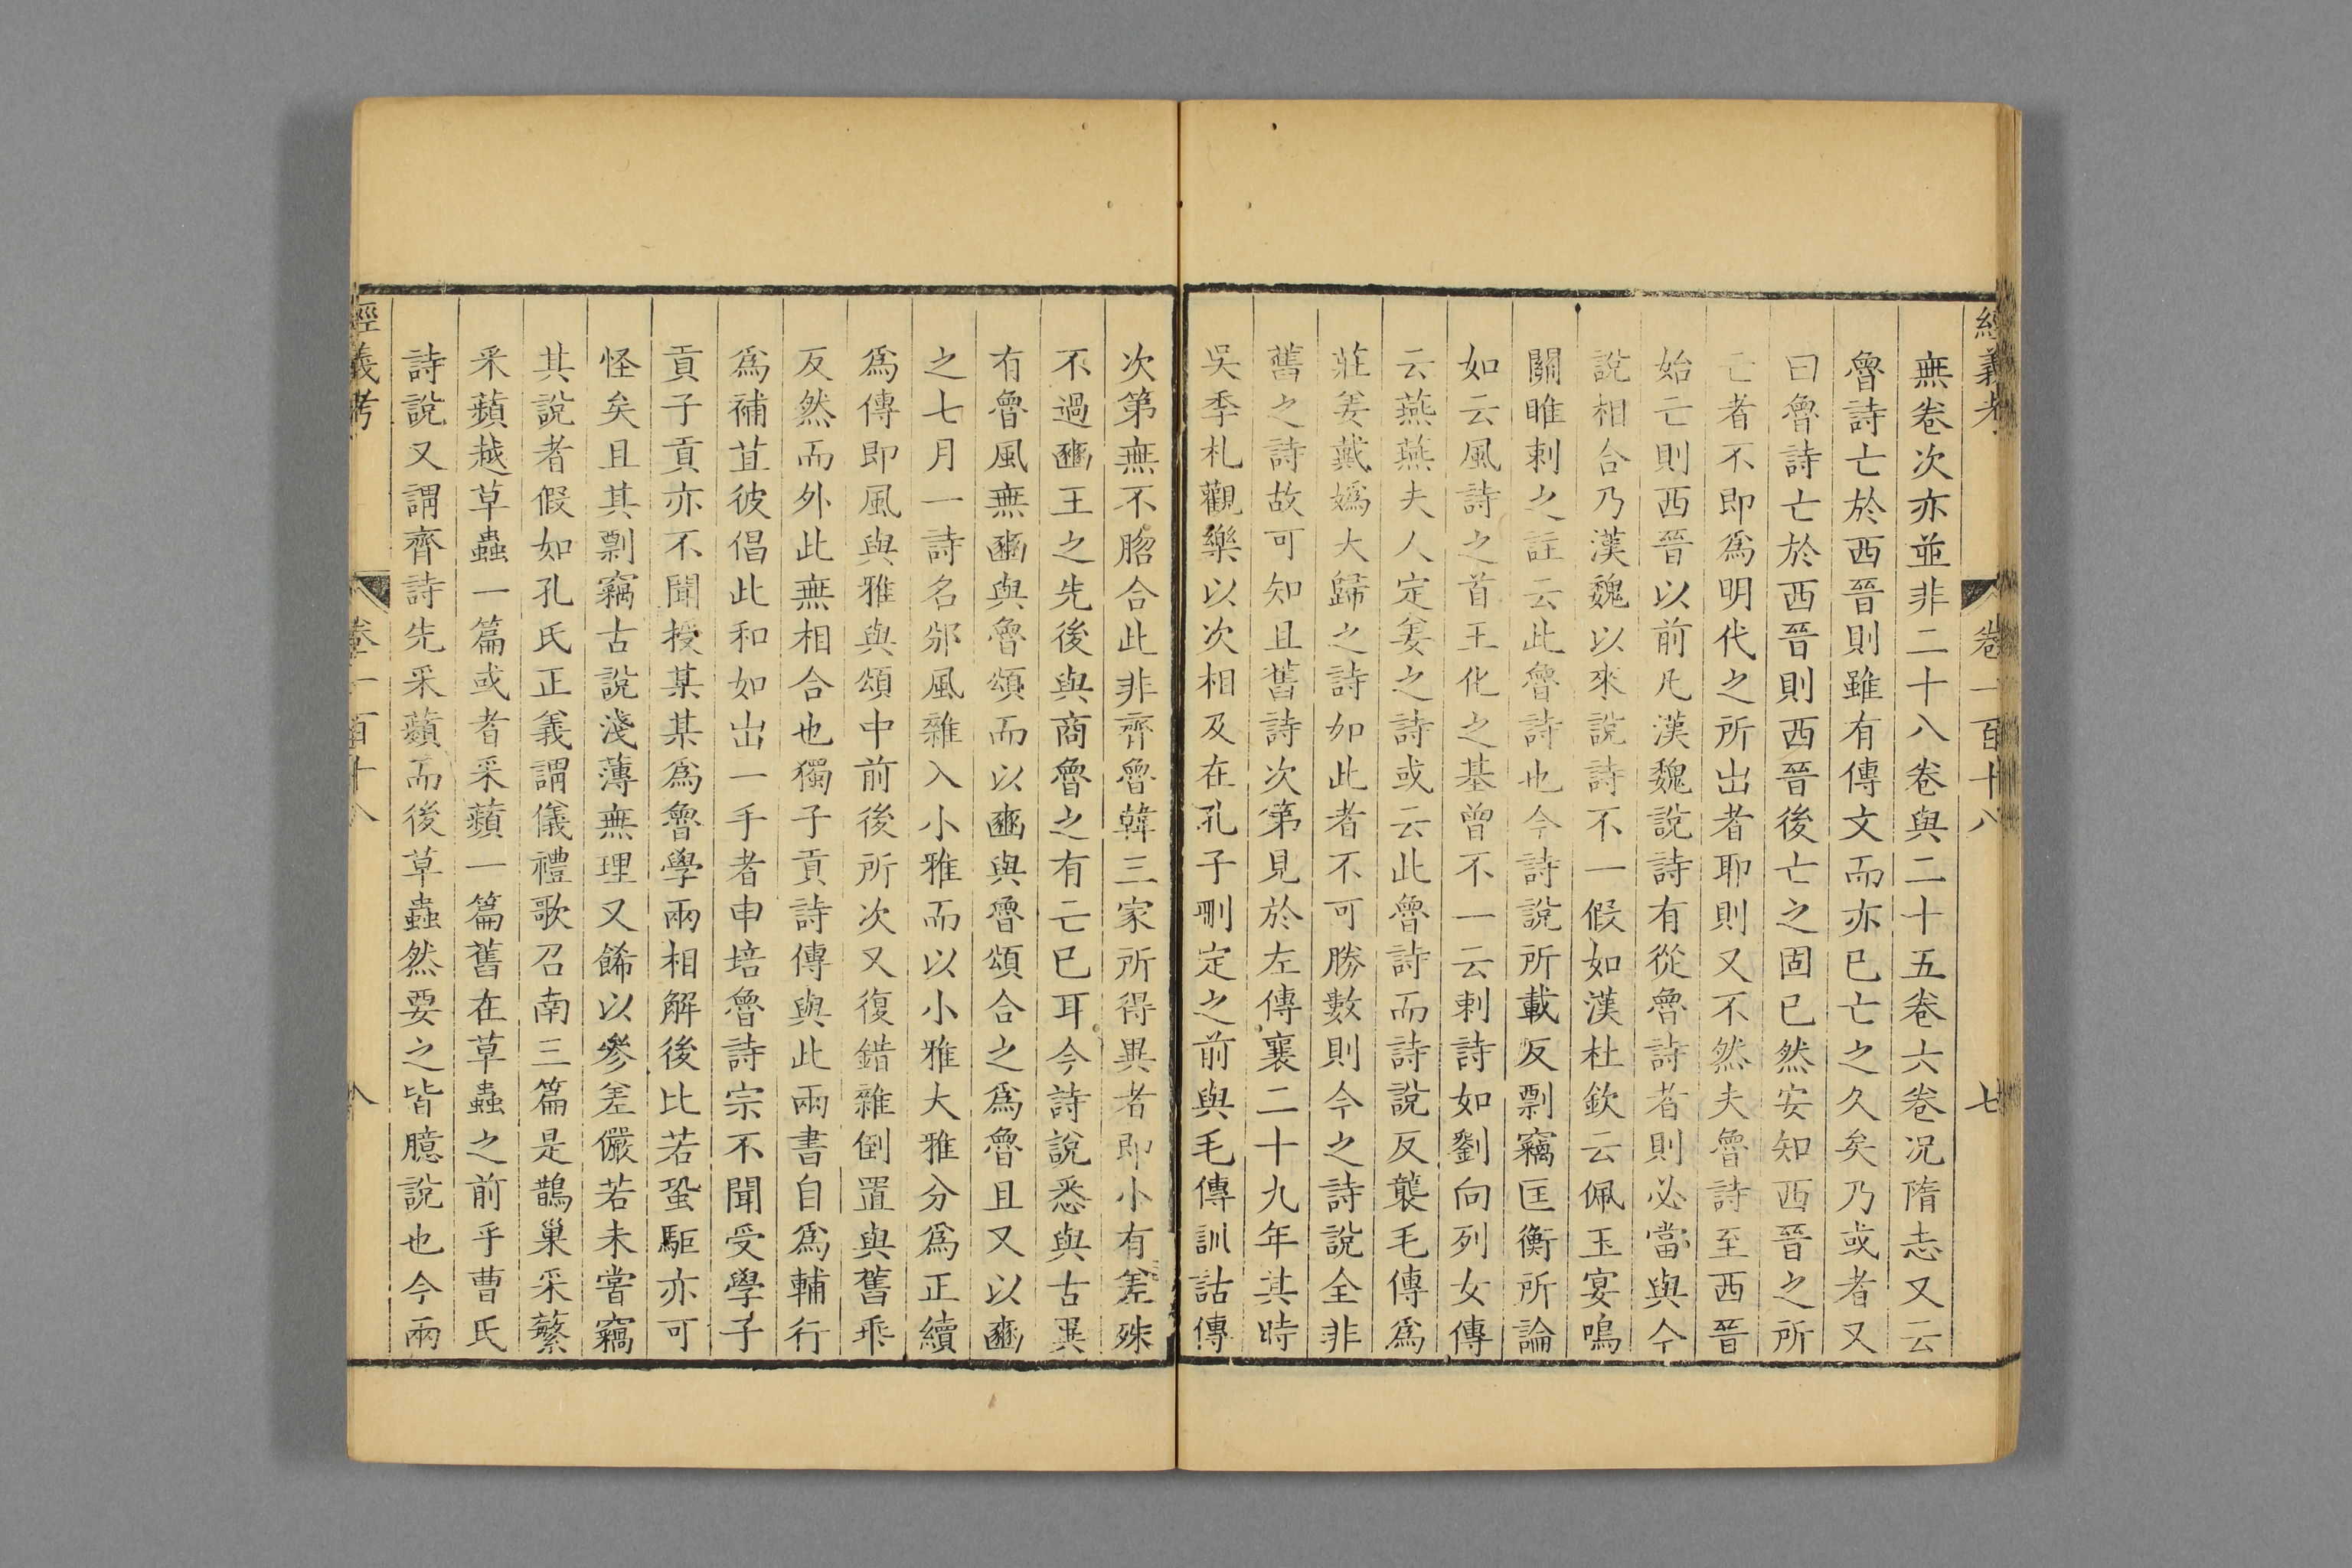 經義考 卷一百十八 七
無卷次亦並非二十八卷與二十五卷六卷况隋志又云
魯詩亡於西晉則雖有傳文而亦已亡之久矣乃或者又
曰魯詩亡於西晉則西晉後亡之固已然安知西晉之所
亡者不即爲明代之所出者耶則又不然夫魯詩至西晉
始亡則西晉以前凡漢魏說詩有從魯詩者則必當與今
說相合乃漢魏以來說詩不一假如漢杜欽云佩玉宴鳴
關雎刺之註云此魯詩也今詩說所載反剽竊匡衡所論
如云風詩之首王化之基曾不一云刺詩如劉向列女傳
云燕燕夫人定姜之詩或云此魯詩而詩說反襲毛傳爲
莊姜戴嬀大歸之詩如此者不可勝數則今之詩說全非
舊之詩故可知且舊詩次第見於左傳襄二十九年其時
吳季札觀樂以次相及在孔子刪定之前與毛傳訓詁傳
次第無不脗合此非齊魯韓三家所得異者即小有差殊
不過豳王之先後與商魯之有亡已耳今詩說悉與古異
有魯風無豳與魯頌而以豳與魯頌合之爲魯且又以豳
之七月一詩名邠風雜入小雅而以小雅大雅分爲正續
爲傳即風與雅與頌中前後所次又復錯雜倒置與舊乖
反然而外此無相合也獨子貢詩傳與此兩書自爲輔行
爲補苴彼倡此和如出一手者申培魯詩宗不聞受學子
貢子貢亦不聞授某某爲魯學兩相解後比若蛩駏亦可
怪矣且其剽竊古說淺薄無理又餙以參差儼若未嘗竊
其說者假如孔氏正義謂儀禮歌召南三篇是鵲巢采蘩
采蘋越草蟲一篇或者采蘋一篇舊在草蟲之前乎曹氏
詩說又謂齊詩先采蘋而後草蟲然要之皆臆說也今兩
經義考 卷一百十八 八